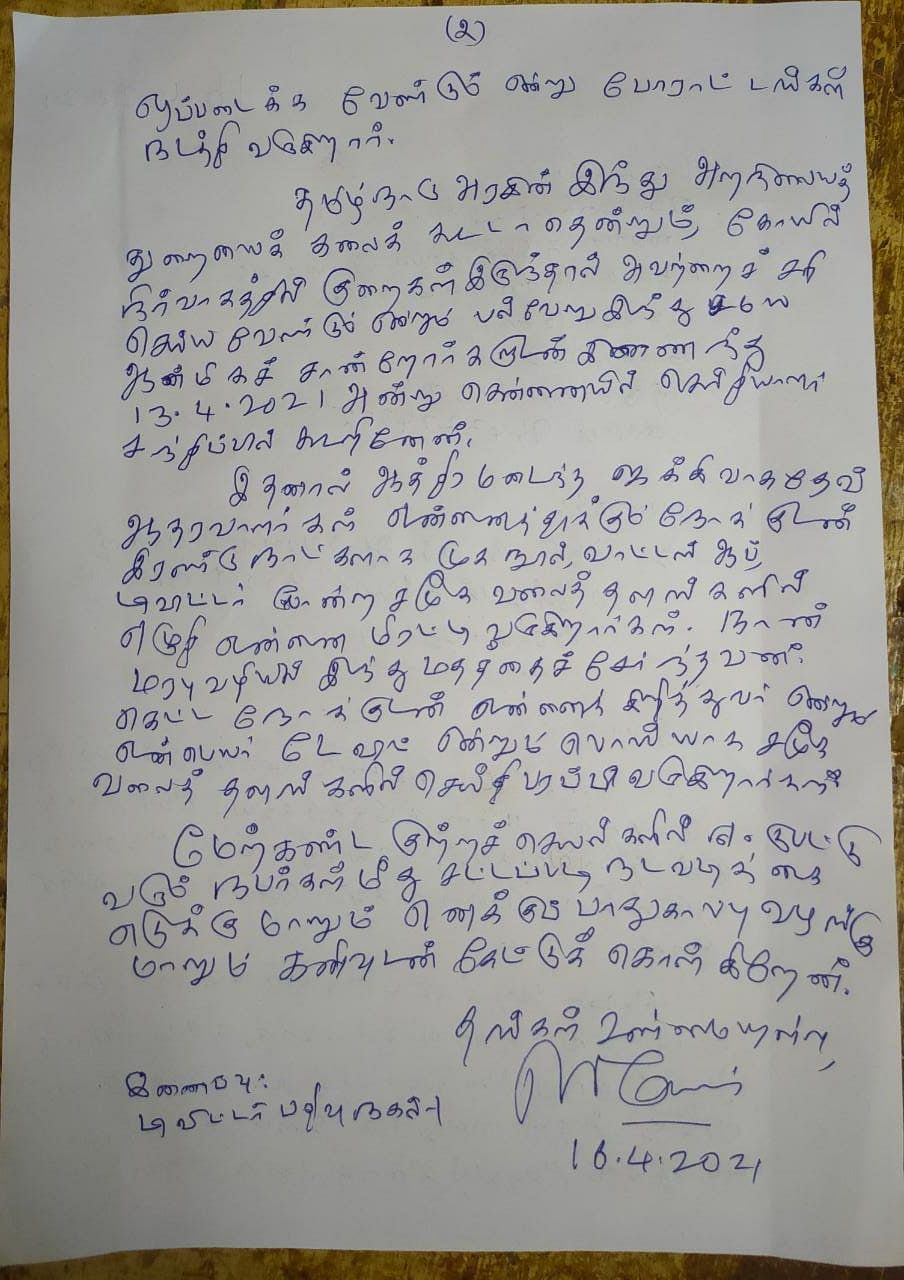 (2)
ஒப்படைக்க வேண்டும் என்று போராட்டங்கள்
நடத்தி வருகிறார்.
தமிழ்நாடு அரசின் இந்து அறநிலையத்
துறையைக் கலைக் கூடாதென்றும், கோயில்
நிர்வாகத்தில் குறைகள் இருந்தால் அவற்றைச் சரி
செய்ய வேண்டும் என்றும் பல்வேறு இந்து சமய
ஆன்மிகச் சான்றோர்களுடன் இணைந்து
13.4.2021 அன்று சென்னையில் செய்தியாளர்
சந்திப்பில் கூறினேன்.
இதனால் ஆத்திரமடைந்த ஜக்கிவாசுதேவ்
ஆதரவாளர்கள் என்னைத் நோக்குடன்
இரண்டு நாட்களாக முகநூல், வாட்ஸ் ஆப்,
டிவிட்டர் போன்ற சமூக வலைத் தளங்களில்
எழுதி என்னை மிரட்டி வருகிறார்கள். நான்
மரபு வழியில் இந்து மதத்தைச் சேர்ந்தவன்.
கெட்ட நோக்குடன் என்னைக் கிறித்துவர் என்றும்
என் பெயர் டேவிட் என்றும் பொய்யாக சமூக
வலைத் தளங்களில் செய்தி பரப்பி வருகிறார்கள்
மேற்கண்ட குற்றச் செயல்களில் ஈடுபட்டு
வரும் நபர்கள் மீது சட்டப்படி நடவடிக்கை
எடுக்குமாறும் எனக்கு பாதுகாப்பு வழங்கு
மாறும் கனிவுடன் கேட்டுக் கொள்கிறேன்.
தங்கள் உண்மையுள்ள,
இணைப்பு:
டிவிட்டர் பதிவு நகல்-1
16.4.2021